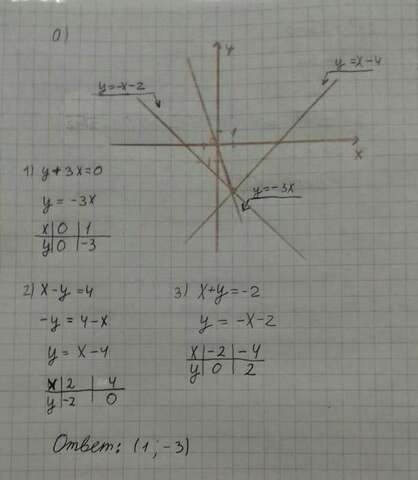 а)
y
y=x-4
y=-x-2
1
x
1) y+3x=0
y=-3x
y = -3x
x|0|1
y|0|-3
2) x-y=4
3) x+y=-2
-y=4-x
y = -x-2
y = x-4
x|-2|-4
y|0|2
x|2|4
y|-2|0
Ответ: (1; -3)